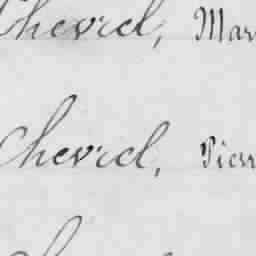 Chevrel, Mar
Chevrel, Pierr